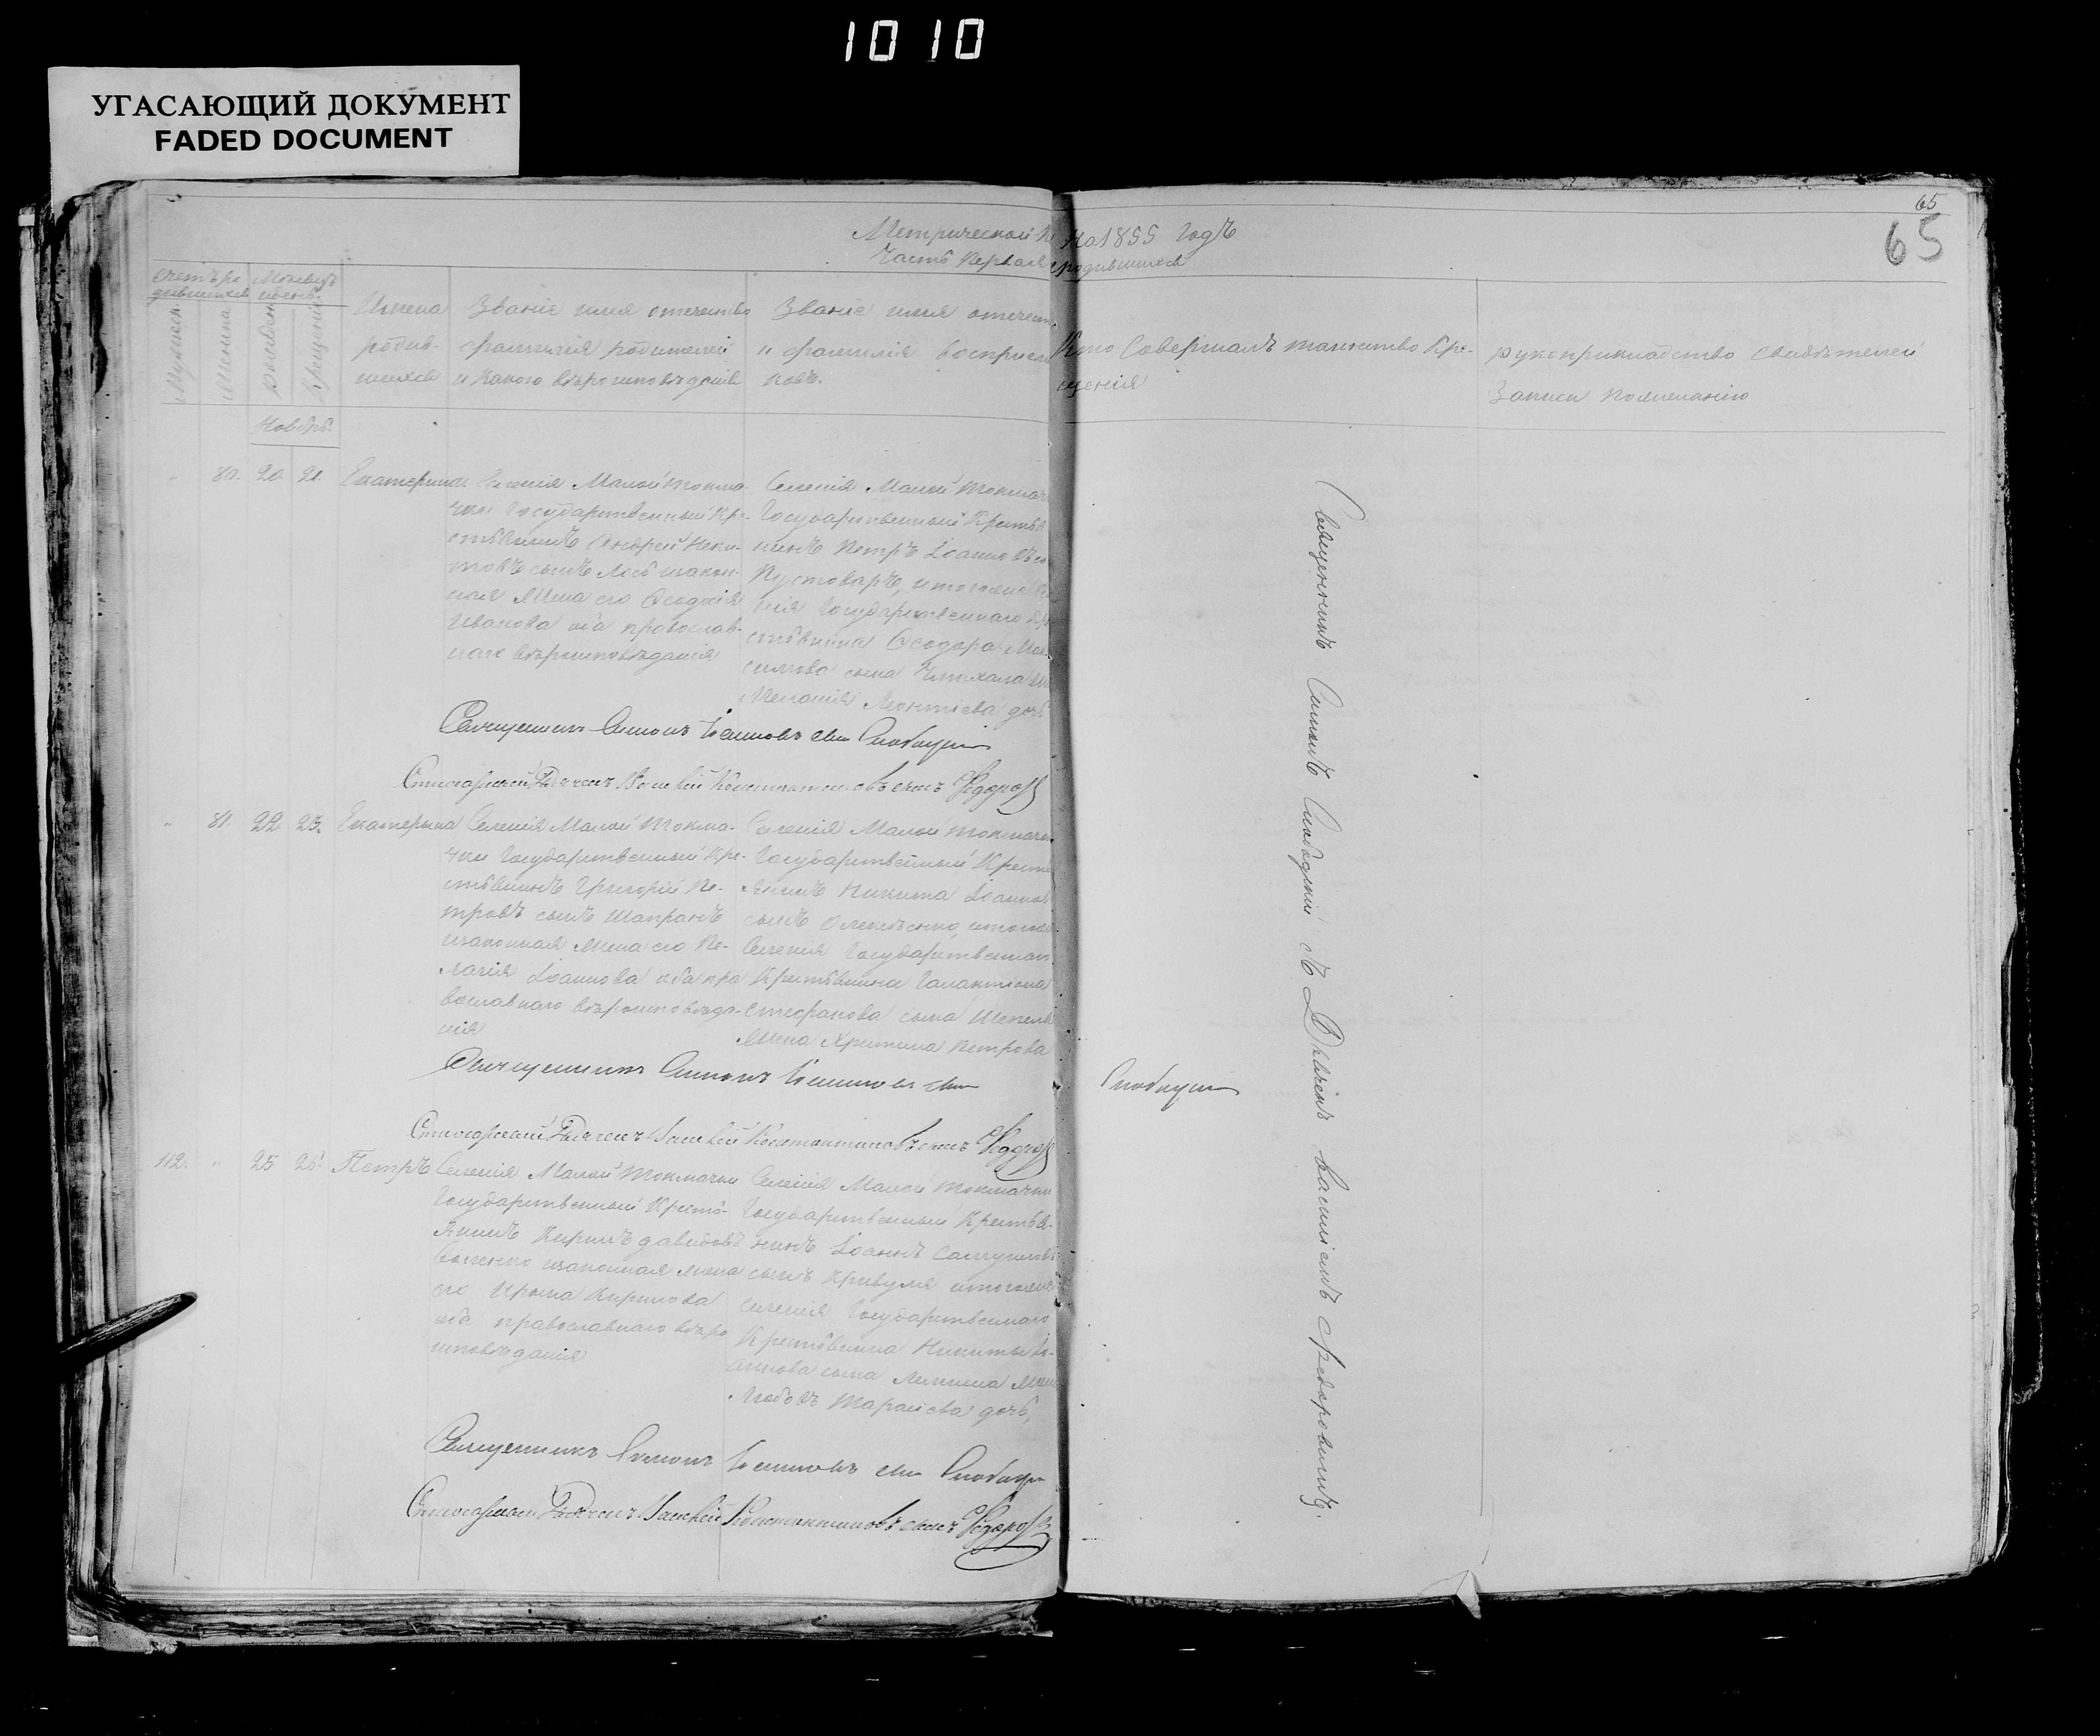 1010
УГАСАЮЩИЙ ДОКУМЕНТ
FADED DOCUMENT
65
65
Метрической на 1855 годъ
Часть Первая о родившихся
Счетъ ро
дившихся
Мѣсяцъ
и день
Мужеска
Женска
рожденія
Крещенія
Имена
родив-
шихся
Званіе имя отечество
фамилія родителей
и какого вѣроисповѣданія
Званіе имя отечест.
и фамилія воспріем
никовъ.
Кто Совершалъ таинство Кре-
щенія
рукоприкладство свидѣтелей
Записи по желанію
Ноябрь
80. 20. 21. Екатерина.
Селенія Малой Токма-
чки Государственный Кре-
стьянинъ Андрей Ники-
товъ сынъ и закон-
ная Жена его Феодосія
Иванова оба православ-
наго вѣроисповѣданія
Селенія Малой Токмачк
Государственный Крестья
нинъ Петръ Іоанновъ
Пустоваръ, и тогоже се
нія Государственного Кр
стьянина Феодора Мак
симова сына
Меланія Леонтіева дочь
Священникъ Симонъ Іоанновъ сынъ Слободскій
Стихарный Дьячекъ Василій Константиновъ сынъ Федоров
81. 22. 23. Екатерина
Селенія Малой Токма-
чки Государственный Кре-
стьянинъ Григорій Пе-
тровъ сынъ Шапранъ
и законная Жена его Пе-
лагія Іоаннова оба пра
вославнаго вѣроисповѣда-
нія
Селенія Малой Токмачки
Государственный Кресть
янинъ Никита Іоаннов
сынъ и тогоже
Селенія Государственнаго
Крестьянина Галактіона
Стефанова сына
Жена Христина Петрова
Священникъ Симонъ Іоанновъ сынъ
Слободскій
Стихарный Дьячекъ Василій Константиновъ сынъ Федоров
112. 25. 26. Петръ
Селенія Малой Токмачки
Государственный Кресть-
янинъ Кирилъ Давидовъ
и законная жена
его Кирилова
оба православнаго вѣро
исповѣданія
Селенія Малой Токмачки
Государственный Крестья-
нинъ Іоаннъ Самуиловъ
сынъ Кривуля и тогоже
селенія Государственнаго
Крестьянина Никиты Іо-
аннова сына Жена
Любовь Тарасіева дочь,
Священникъ Симонъ Іоанновъ сынъ Слободскій
Стихарный Дьячекъ Василій Константиновъ сынъ Федоровъ
Священникъ Симонъ Слободскій съ Дьячкомъ Василіемъ Федоровымъ.